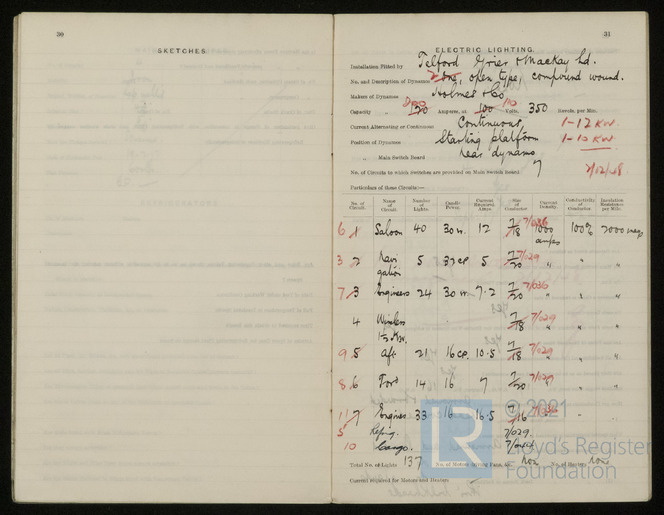 30
SKETCHES.
31
ELECTRIC LIGHTING.
Installation Fitted by Telford Grier & Mackay Ld.
No. and Description of Dynamos One, open type, compound wound.
Makers of Dynamos Holmes & Co
Capacity Amperes, at 100 110 Volts, 350 Revols. per Min.
Current Alternating or Continuous Continuous 1-12 KW.
Position of Dynamos Starting platform 1-10 KW.
„ Main Switch Board near dynamo
No. of Circuits to which Switches are provided on Main Switch Board 7
Particulars of these Circuits:—
No. of Circuit. Name of Circuit. Number of Lights. Candle Power. Current Required. Amps. Size of Conductor. Current Density. Conductivity of Conductor. Insulation Resistance per Mile.
6 1 Saloon 40 30w. 12 7/18 7/036 1000 amps 100% 2000 megs
3 2 Navigation 5 32cp 5 7/20 7/029 " " "
7 3 Engineers 24 30w 7.2 7/20 7/036 " " "
4 Wireless 1½ KW. 7/18 7/029 " " "
9 5 Aft 21 16cp. 10.5 7/18 7/029 " " "
8 6 For'd 14 16 7 7/20 7/029 " " "
11 7 Engines 33 16 16.5 7/16 7/036
5 Refrig. 7/029
10 Cargo.
© 2021
LR
Lloyd's Register
Foundation
Total No. of Lights 137 No. of Motors driving Fans, &c. None No. of Heaters None
Current required for Motors and Heaters